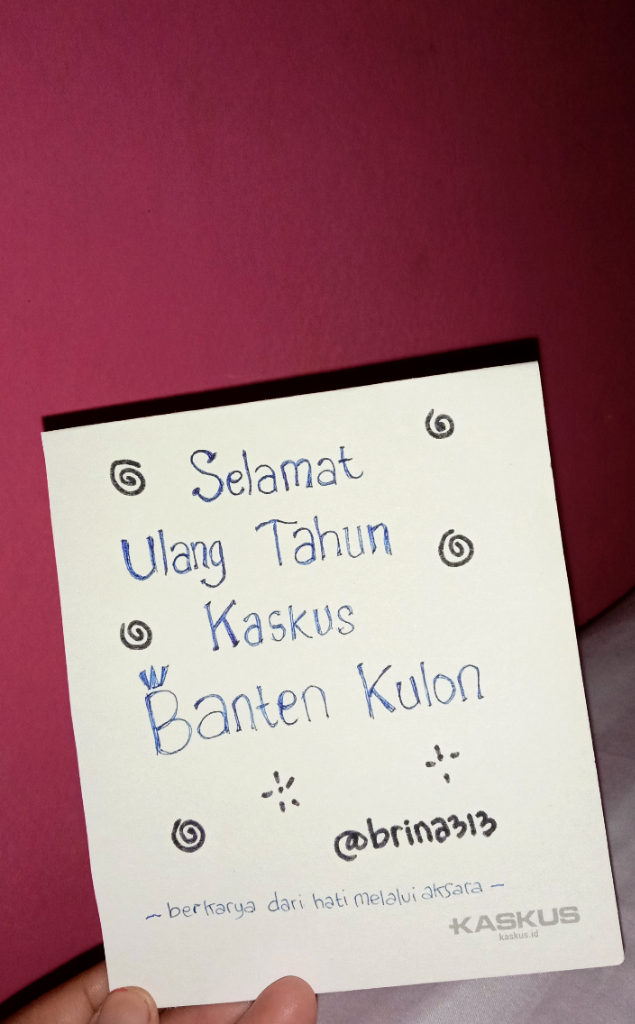 Selamat
Ulang Tahun
Kaskus
Banten Kulon
@brina313
~berkarya dari hati melalui aksara~
KASKUS
kaskus.id